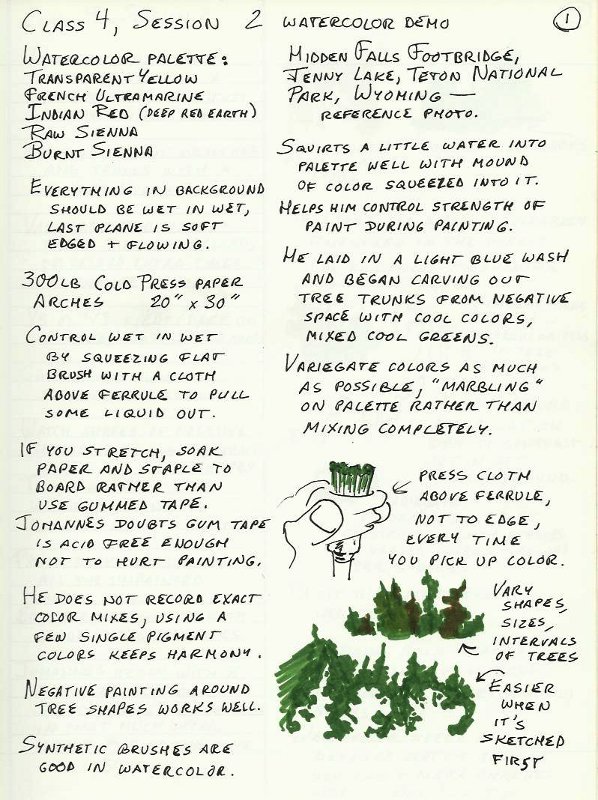 Class 4, Session 2 Watercolor Demo
1
Watercolor Palette:
Transparent Yellow
French Ultramarine
Indian Red (Deep Red Earth)
Raw Sienna
Burnt Sienna
Everything in background
should be wet in wet,
last plane is soft
edged + flowing.
300lb Cold Press paper
Arches 20" x 30"
Control wet in wet
by squeezing flat
brush with a cloth
above ferrule to pull
some liquid out.
If you stretch, soak
paper and staple to
board rather than
use gummed tape.
Johannes doubts gum tape
is acid free enough
not to hurt painting.
He does not record exact
color mixes, using a
few single pigment
colors keeps harmony.
Negative painting around
tree shapes works well.
Synthetic brushes are
good in watercolor.
Hidden Falls Footbridge,
Jenny Lake, Teton National
Park, Wyoming —
reference photo.
Squirts a little water into
palette well with mound
of color squeezed into it.
Helps him control strength of
paint during painting.
He laid in a light blue wash
and began carving out
tree trunks from negative
space with cool colors,
mixed cool greens.
Variegate colors as much
as possible, "marbling"
on palette rather than
mixing completely.
Press cloth
above ferrule,
not to edge,
every time
you pick up color.
Vary
shapes,
sizes,
intervals
of trees
Easier
when
it's
sketched
first